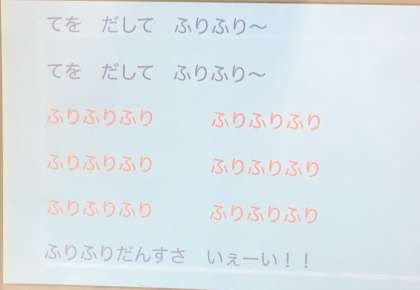 てを　だして　ふりふり～
てを　だして　ふりふり～
ふりふりふり　ふりふりふり
ふりふりふり　ふりふりふり
ふりふりふり　ふりふりふり
ふりふりだんすさ　いぇーい！！